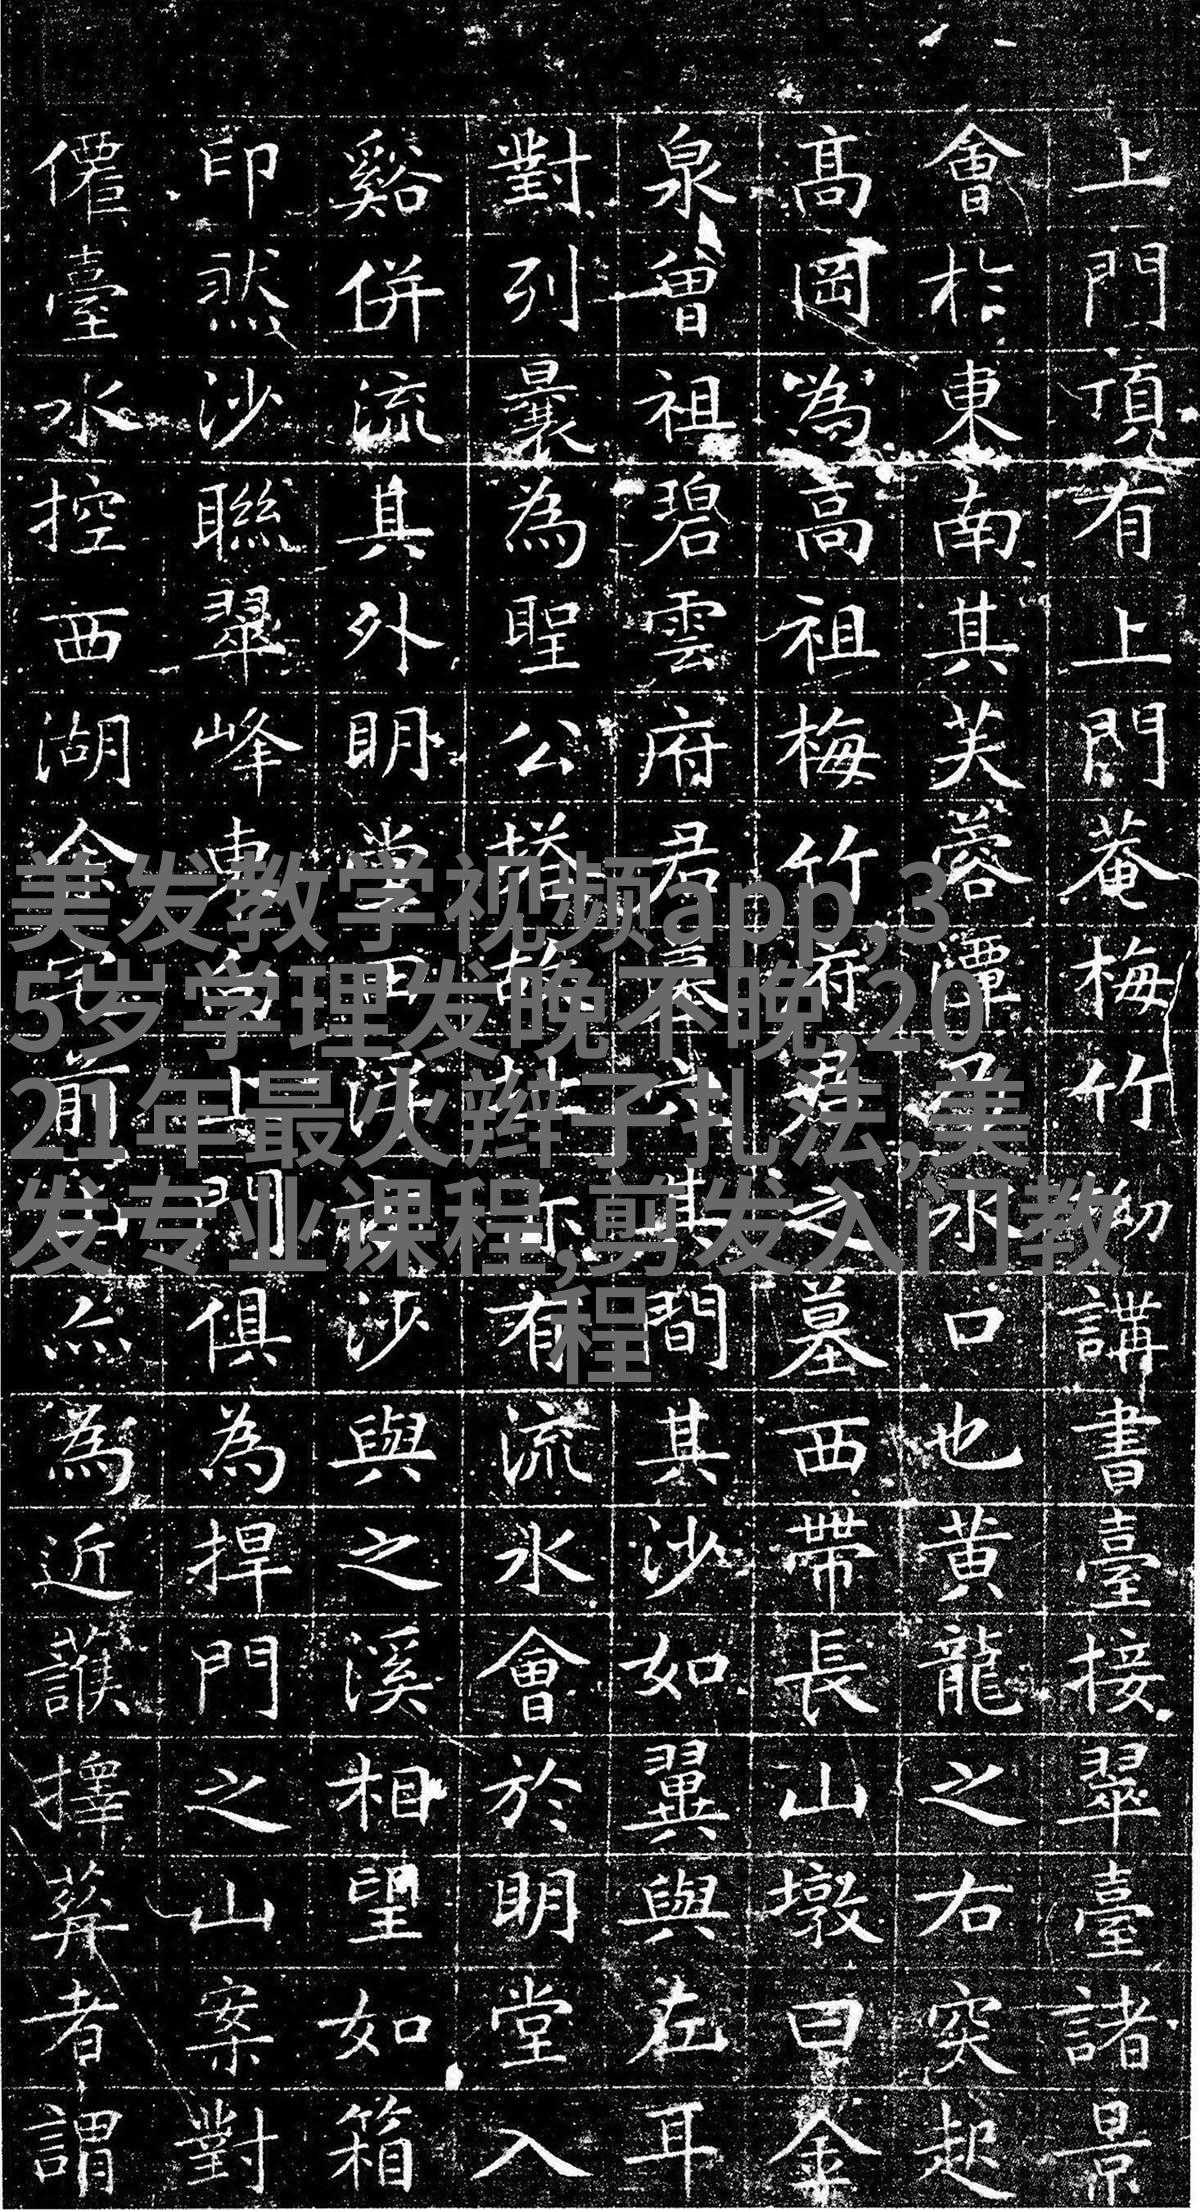 上門頂有上門菴梅竹講書臺接翠臺諸景
會於東南其芙蓉潭水口也黃龍之右突起
高岡為高祖梅竹府君之墓西帶長山墩曰金
泉曾祖碧雲府君墓其間其沙如翼與左耳
對列曩為聖公故址亦有流水會於明堂入
谿併流其外明堂田沙與之溪相望如箱
印然沙聯翠峰上俱為捍門之山案對
僊臺水控西湖前為近護擇葬者謂
美发教学视频app,3
5岁学理发晚不晚,20
21年最火辫子扎法,美
发专业课程,剪发入门教
程